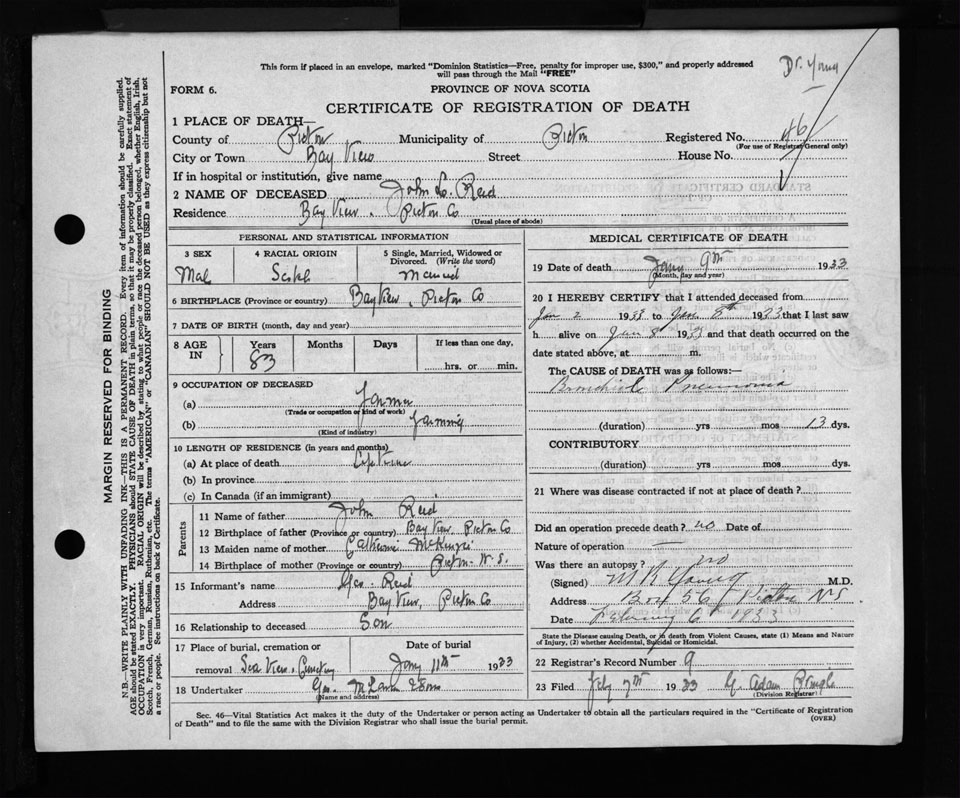 This form if placed in an envelope, marked "Dominion Statistics—Free, penalty for improper use, $300," and properly addressed
will pass through the Mail "FREE"
Dr. Young
FORM 6.
PROVINCE OF NOVA SCOTIA
CERTIFICATE OF REGISTRATION OF DEATH
1 PLACE OF DEATH—
County of Pictou Municipality of Pictou Registered No. 46
(For use of Registrar General only)
City or Town Bay View Street House No.
If in hospital or institution, give name
2 NAME OF DECEASED John L. Reid
Residence Bay View, Pictou Co
(Usual place of abode)
PERSONAL AND STATISTICAL INFORMATION
3 SEX 4 RACIAL ORIGIN 5 Single, Married, Widowed or
Divorced. (Write the word)
Mal Married
6 BIRTHPLACE (Province or country) Bay View, Pictou Co
7 DATE OF BIRTH (month, day and year)
8 AGE IN Years Months Days If less than one day,
83 hrs. or min.
9 OCCUPATION OF DECEASED
(a) Farmer
(Trade or occupation or kind of work)
(b) Farming
(Kind of industry)
10 LENGTH OF RESIDENCE (in years and months)
(a) At place of death Life Time
(b) In province
(c) In Canada (if an immigrant)
Parents
11 Name of father John Reid
12 Birthplace of father (Province or country) Bay View, Pictou Co
13 Maiden name of mother Catherine McKenzie
14 Birthplace of mother (Province or country) Pictou N.S.
15 Informant's name Geo. Reid
Address Bay View, Pictou Co
16 Relationship to deceased Son
17 Place of burial, cremation or Date of burial
removal Sea View Cemetery Jany 11th 1933
18 Undertaker Geo. & Sons
(Name and address)
MEDICAL CERTIFICATE OF DEATH
19 Date of death Jany 9th 1933
(Month, day and year)
20 I HEREBY CERTIFY that I attended deceased from
Jan 2 1933 to Jan 8th 1933 that I last saw
h alive on Jan 8 1933 and that death occurred on the
date stated above, at m.
The CAUSE of DEATH was as follows:—
Bronchial Pneumonia
(duration) yrs mos 13 dys.
CONTRIBUTORY
(duration) yrs mos dys.
21 Where was disease contracted if not at place of death?
Did an operation precede death? no Date of
Nature of operation —
Was there an autopsy? no
(Signed) M R Young M.D.
Address Box 56 Pictou NS
Date February 6 1933
State the Disease causing Death, or in death from Violent Causes, state (1) Means and Nature
of Injury, (2) whether Accidental, Suicidal or Homicidal.
22 Registrar's Record Number 9
23 Filed Feby 7th 1933 G. Adam Pringle
(Division Registrar)
Sec. 46—Vital Statistics Act makes it the duty of the Undertaker or person acting as Undertaker to obtain all the particulars required in the "Certificate of Registration
of Death" and to file the same with the Division Registrar who shall issue the burial permit.
(OVER)
MARGIN RESERVED FOR BINDING
N.B.—WRITE PLAINLY WITH UNFADING INK—THIS IS A PERMANENT RECORD. Every item of information should be carefully supplied.
AGE should be stated EXACTLY. PHYSICIANS should STATE CAUSE OF DEATH in plain terms, so that it may be properly classified. Exact statement of
OCCUPATION is very important. RACIAL ORIGIN will be described by stating to what people or race the deceased person belonged, whether English, Irish,
Scotch, French, German, Russian, Ruthenian, etc. The terms "AMERICAN" or "CANADIAN" SHOULD NOT BE USED as they express citizenship but not
a race or people. See instructions on back of Certificate.